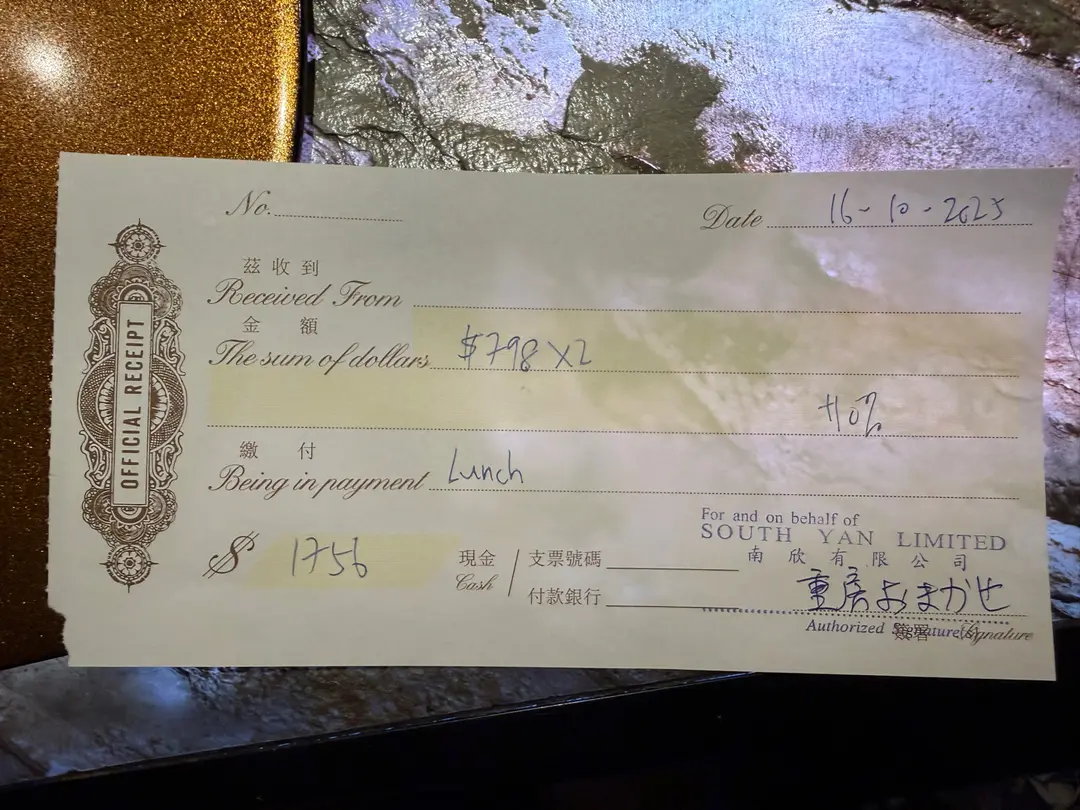 No.
Date 16-10-2025
茲收到
Received From
金額
The sum of dollars $798 X2
+10%
繳付
Being in payment Lunch
OFFICIAL RECEIPT
For and on behalf of
SOUTH YAN LIMITED
南欣有限公司
$ 1756
現金
Cash
支票號碼
付款銀行
おまかせ
Authorized Signature(s)
簽署 Signature